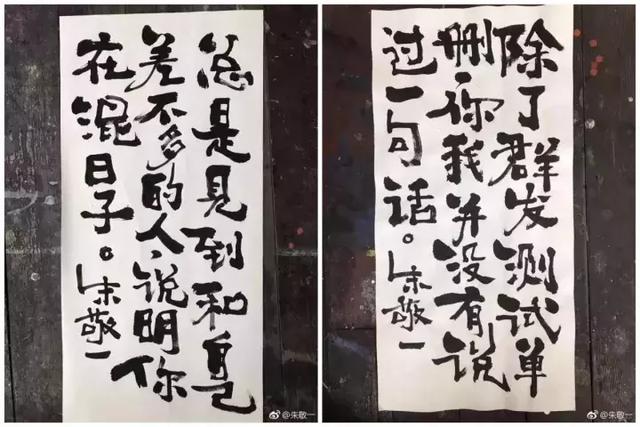 总是见到和自己
差不多的人,说明你
在混日子。朱敬一
除了群发测试单
删,你我并没有说
过一句话。朱敬一
@朱敬一
@朱敬一